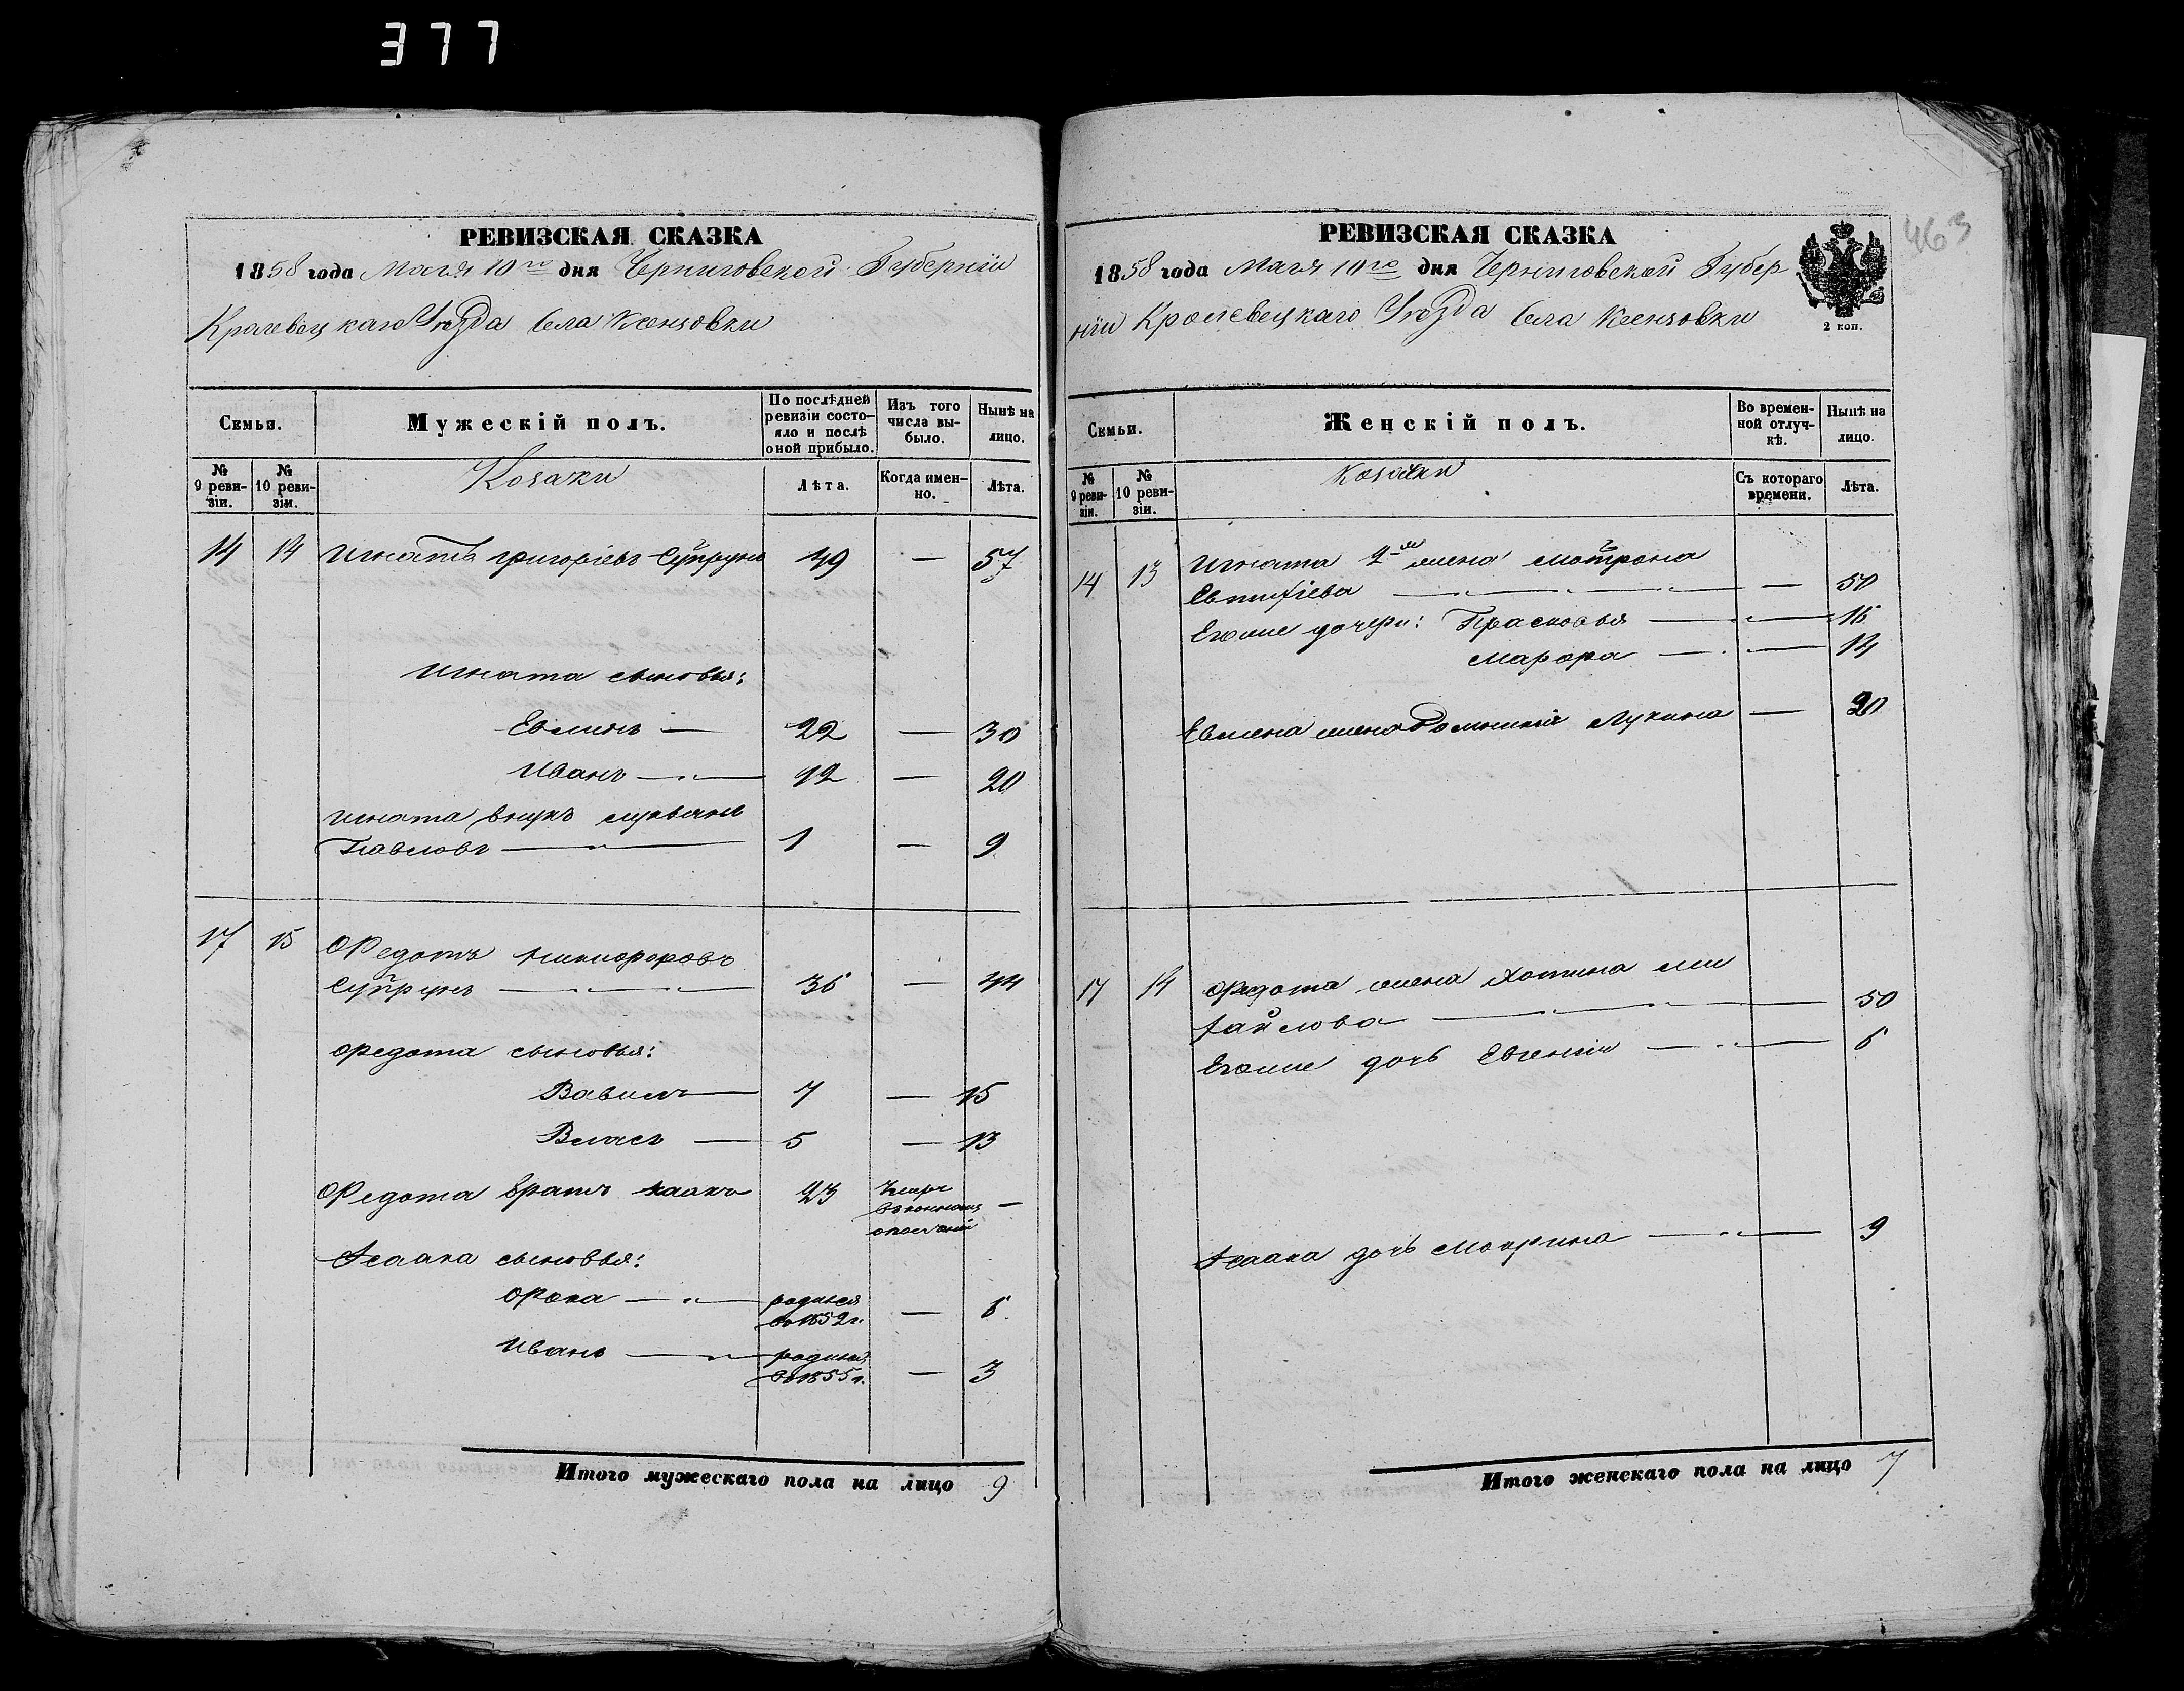 377
РЕВИЗСКАЯ СКАЗКА
1858 года Маія 10го дня Черниговской Губерніи
Кралевецкаго Уѣзда Села Ксензовки
Семьи.
Мужескій полъ.
По послѣдней ревизіи состояло и послѣ оной прибыло.
Изъ того числа выбыло.
Нынѣ на лицо.
№ 9 ревизіи.
№ 10 ревизіи.
Козаки
Лѣта.
Когда именно.
Лѣта.
14 14 Игнатъ Григоріевъ Супрунъ 49 — 57
Игната сыновья:
Евминъ — 22 — 30
Иванъ — 12 — 20
Игната внукъ
Павловъ — 1 — 9
17 15 Федотъ Никифоровъ
Супрунъ — 36 — 44
Федота сыновья:
Вавилъ — 7 — 15
Власъ — 5 — 13
Федота братъ Исаакъ 23 —
ополченіи
Исаака сыновья:
Фока — родился
въ 1852 г. — 6
Иванъ — родился
въ 1855 г. — 3
Итого мужескаго пола на лицо 9
463
РЕВИЗСКАЯ СКАЗКА
1858 года Маія 10го дня Черниговской Губер
ніи Кролевецкаго Уѣзда Села Ксензовки
2 коп.
Семьи.
Женскій полъ.
Во временной отлучкѣ.
Нынѣ на лицо.
№ 9 ревизіи.
№ 10 ревизіи.
Козачки
Съ котораго времени.
Лѣта.
14 13 Игната 2я жена Мотрона
Евтифіева — — 50
Егоже дочери: Прасковья — 16
Марфа — — 14
Евмена жена Домникія Лукина — 20
17 14 Федота жена Хотина Ми
хайлова — 50
Егоже дочь Евгенія — 6
Исаака дочь Мокрина — 9
Итого женскаго пола на лицо 7